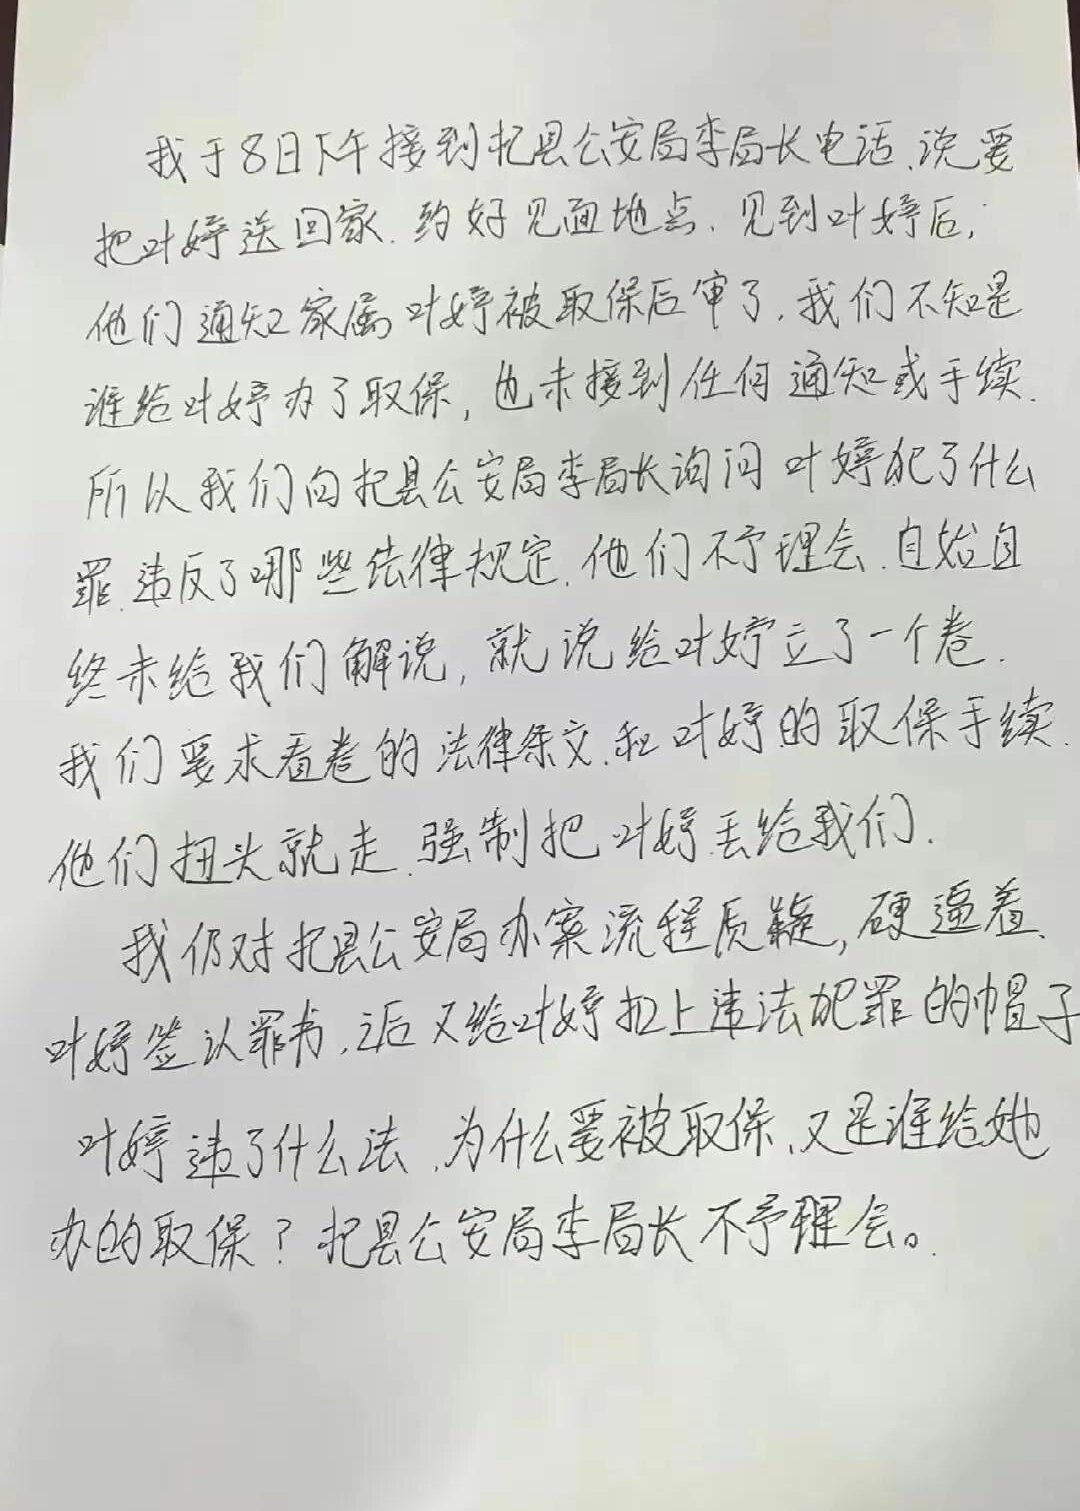 我于8日下午接到杞县公安局李局长电话、说要
把叶婷送回家.约好见面地点、见到叶婷后,
他们通知家属叶婷被取保后审了.我们不知是
谁给叶婷办了取保,也未接到任何通知或手续.
所以我们向杞县公安局李局长询问叶婷犯了什么
罪.违反了哪些法律规定.他们不予理会.自始自
终未给我们解说,就说给叶婷立了一个卷.
我们要求看卷的法律条文.和叶婷的取保手续.
他们扭头就走.强制把叶婷丢给我们.
我仍对杞县公安局办案流程质疑,硬逼着
叶婷签认罪书.之后又给叶婷扣上违法犯罪的帽子
叶婷违了什么法.为什么要被取保、又是谁给她
办的取保?杞县公安局李局长不予理会。